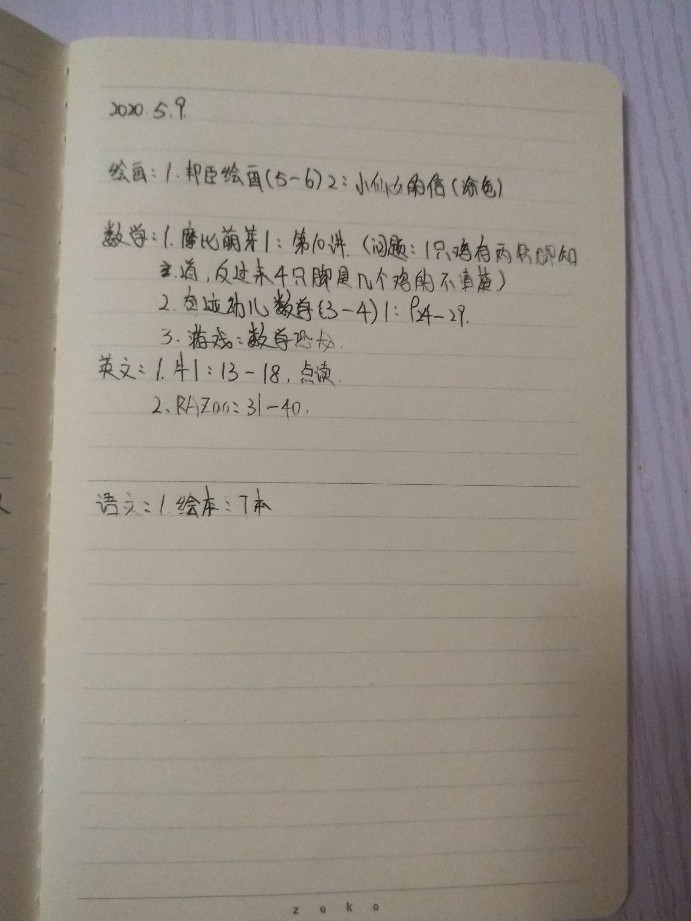 2020.5.9.
绘画:1.邦臣绘画(5-6)2:小仙女的信(涂色)
数学:1.摩比萌芽1:第10讲.(问题:1只鸡有两只脚知
道,反过来4只脚是几个鸡的不清楚)
2.奇迹幼儿数学(3-4)1:P24-29.
3.游戏:数学
英文:1.牛1:13-18.点读.
2.RAZaa:31-40.
语文:1.绘本:7本
zoko